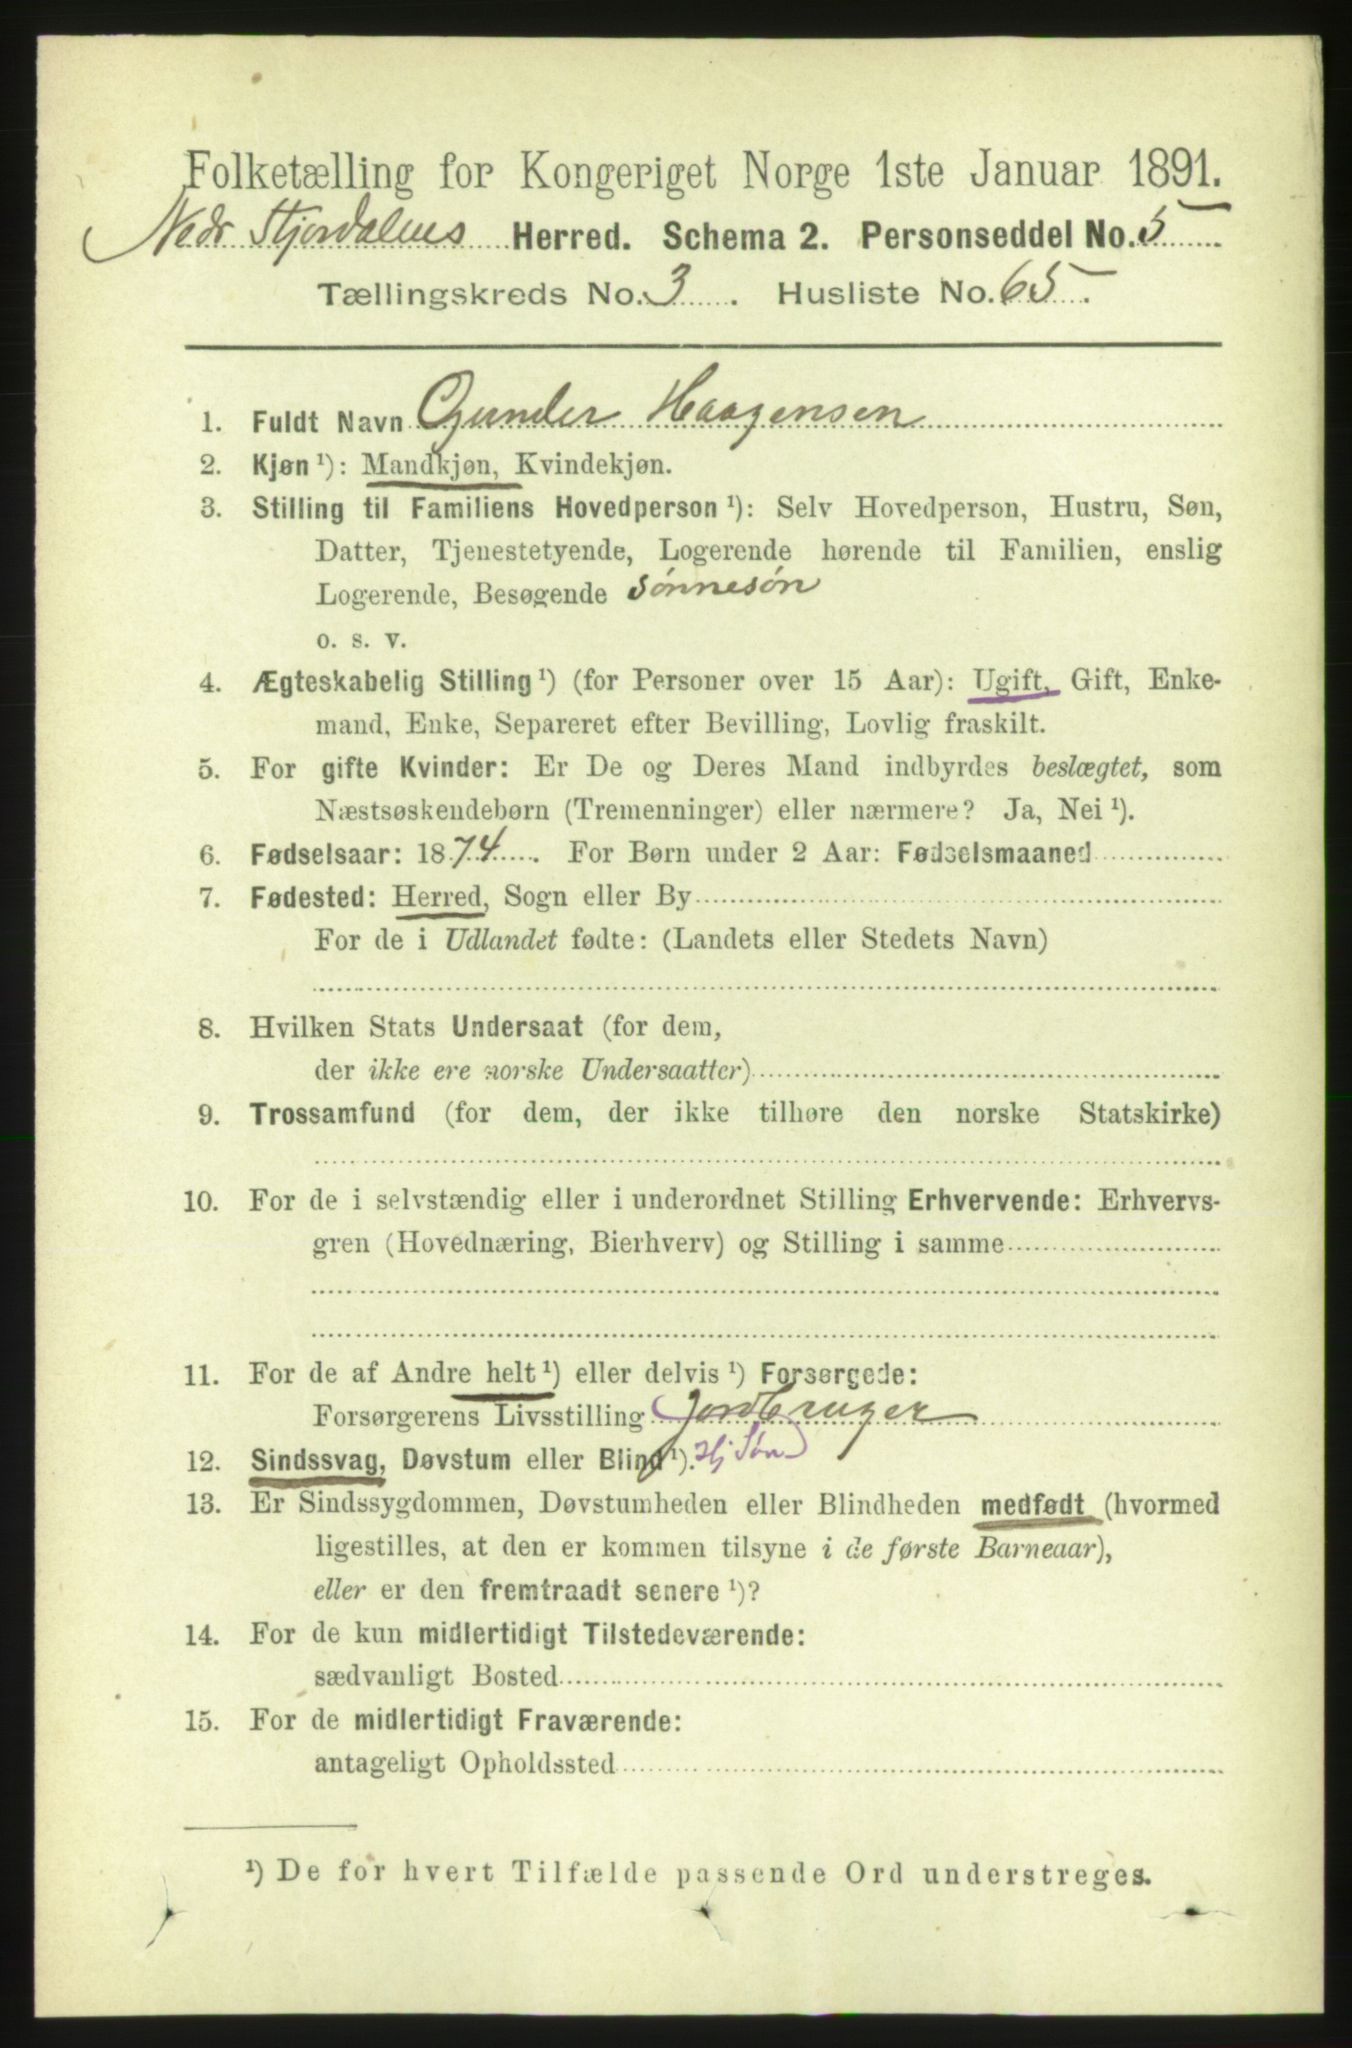 Folketælling for Kongeriget Norge 1ste Januar 1891.
Nedr Stjørdalens Herred. Schema 2. Personseddel No. 5
Tællingskreds No. 3. Husliste No. 65.
1. Fuldt Navn Gunder Haagensen
2. Kjøn ¹): Mandkjøn, Kvindekjøn.
3. Stilling til Familiens Hovedperson ¹): Selv Hovedperson, Hustru, Søn,
Datter, Tjenestetyende, Logerende hørende til Familien, enslig
Logerende, Besøgende Sønnesøn
o. s. v.
4. Ægteskabelig Stilling ¹) (for Personer over 15 Aar): Ugift, Gift, Enke-
mand, Enke, Separeret efter Bevilling, Lovlig fraskilt.
5. For gifte Kvinder: Er De og Deres Mand indbyrdes beslægtet, som
Næstsøskendebørn (Tremenninger) eller nærmere? Ja, Nei ¹).
6. Fødselsaar: 1874. For Børn under 2 Aar: Fødselsmaaned
7. Fødested: Herred, Sogn eller By
For de i Udlandet fødte: (Landets eller Stedets Navn)
8. Hvilken Stats Undersaat (for dem,
der ikke ere norske Undersaatter)
9. Trossamfund (for dem, der ikke tilhøre den norske Statskirke)
10. For de i selvstændig eller i underordnet Stilling Erhvervende: Erhvervs-
gren (Hovednæring, Bierhverv) og Stilling i samme
11. For de af Andre helt ¹) eller delvis ¹) Forsørgede:
Forsørgerens Livsstilling Jordbruger
12. Sindssvag, Døvstum eller Blind ¹). Hj Søn
13. Er Sindssygdommen, Døvstumheden eller Blindheden medfødt (hvormed
ligestilles, at den er kommen tilsyne i de første Barneaar),
eller er den fremtraadt senere ¹)?
14. For de kun midlertidigt Tilstedeværende:
sædvanligt Bosted
15. For de midlertidigt Fraværende:
antageligt Opholdssted
¹) De for hvert Tilfælde passende Ord understreges.